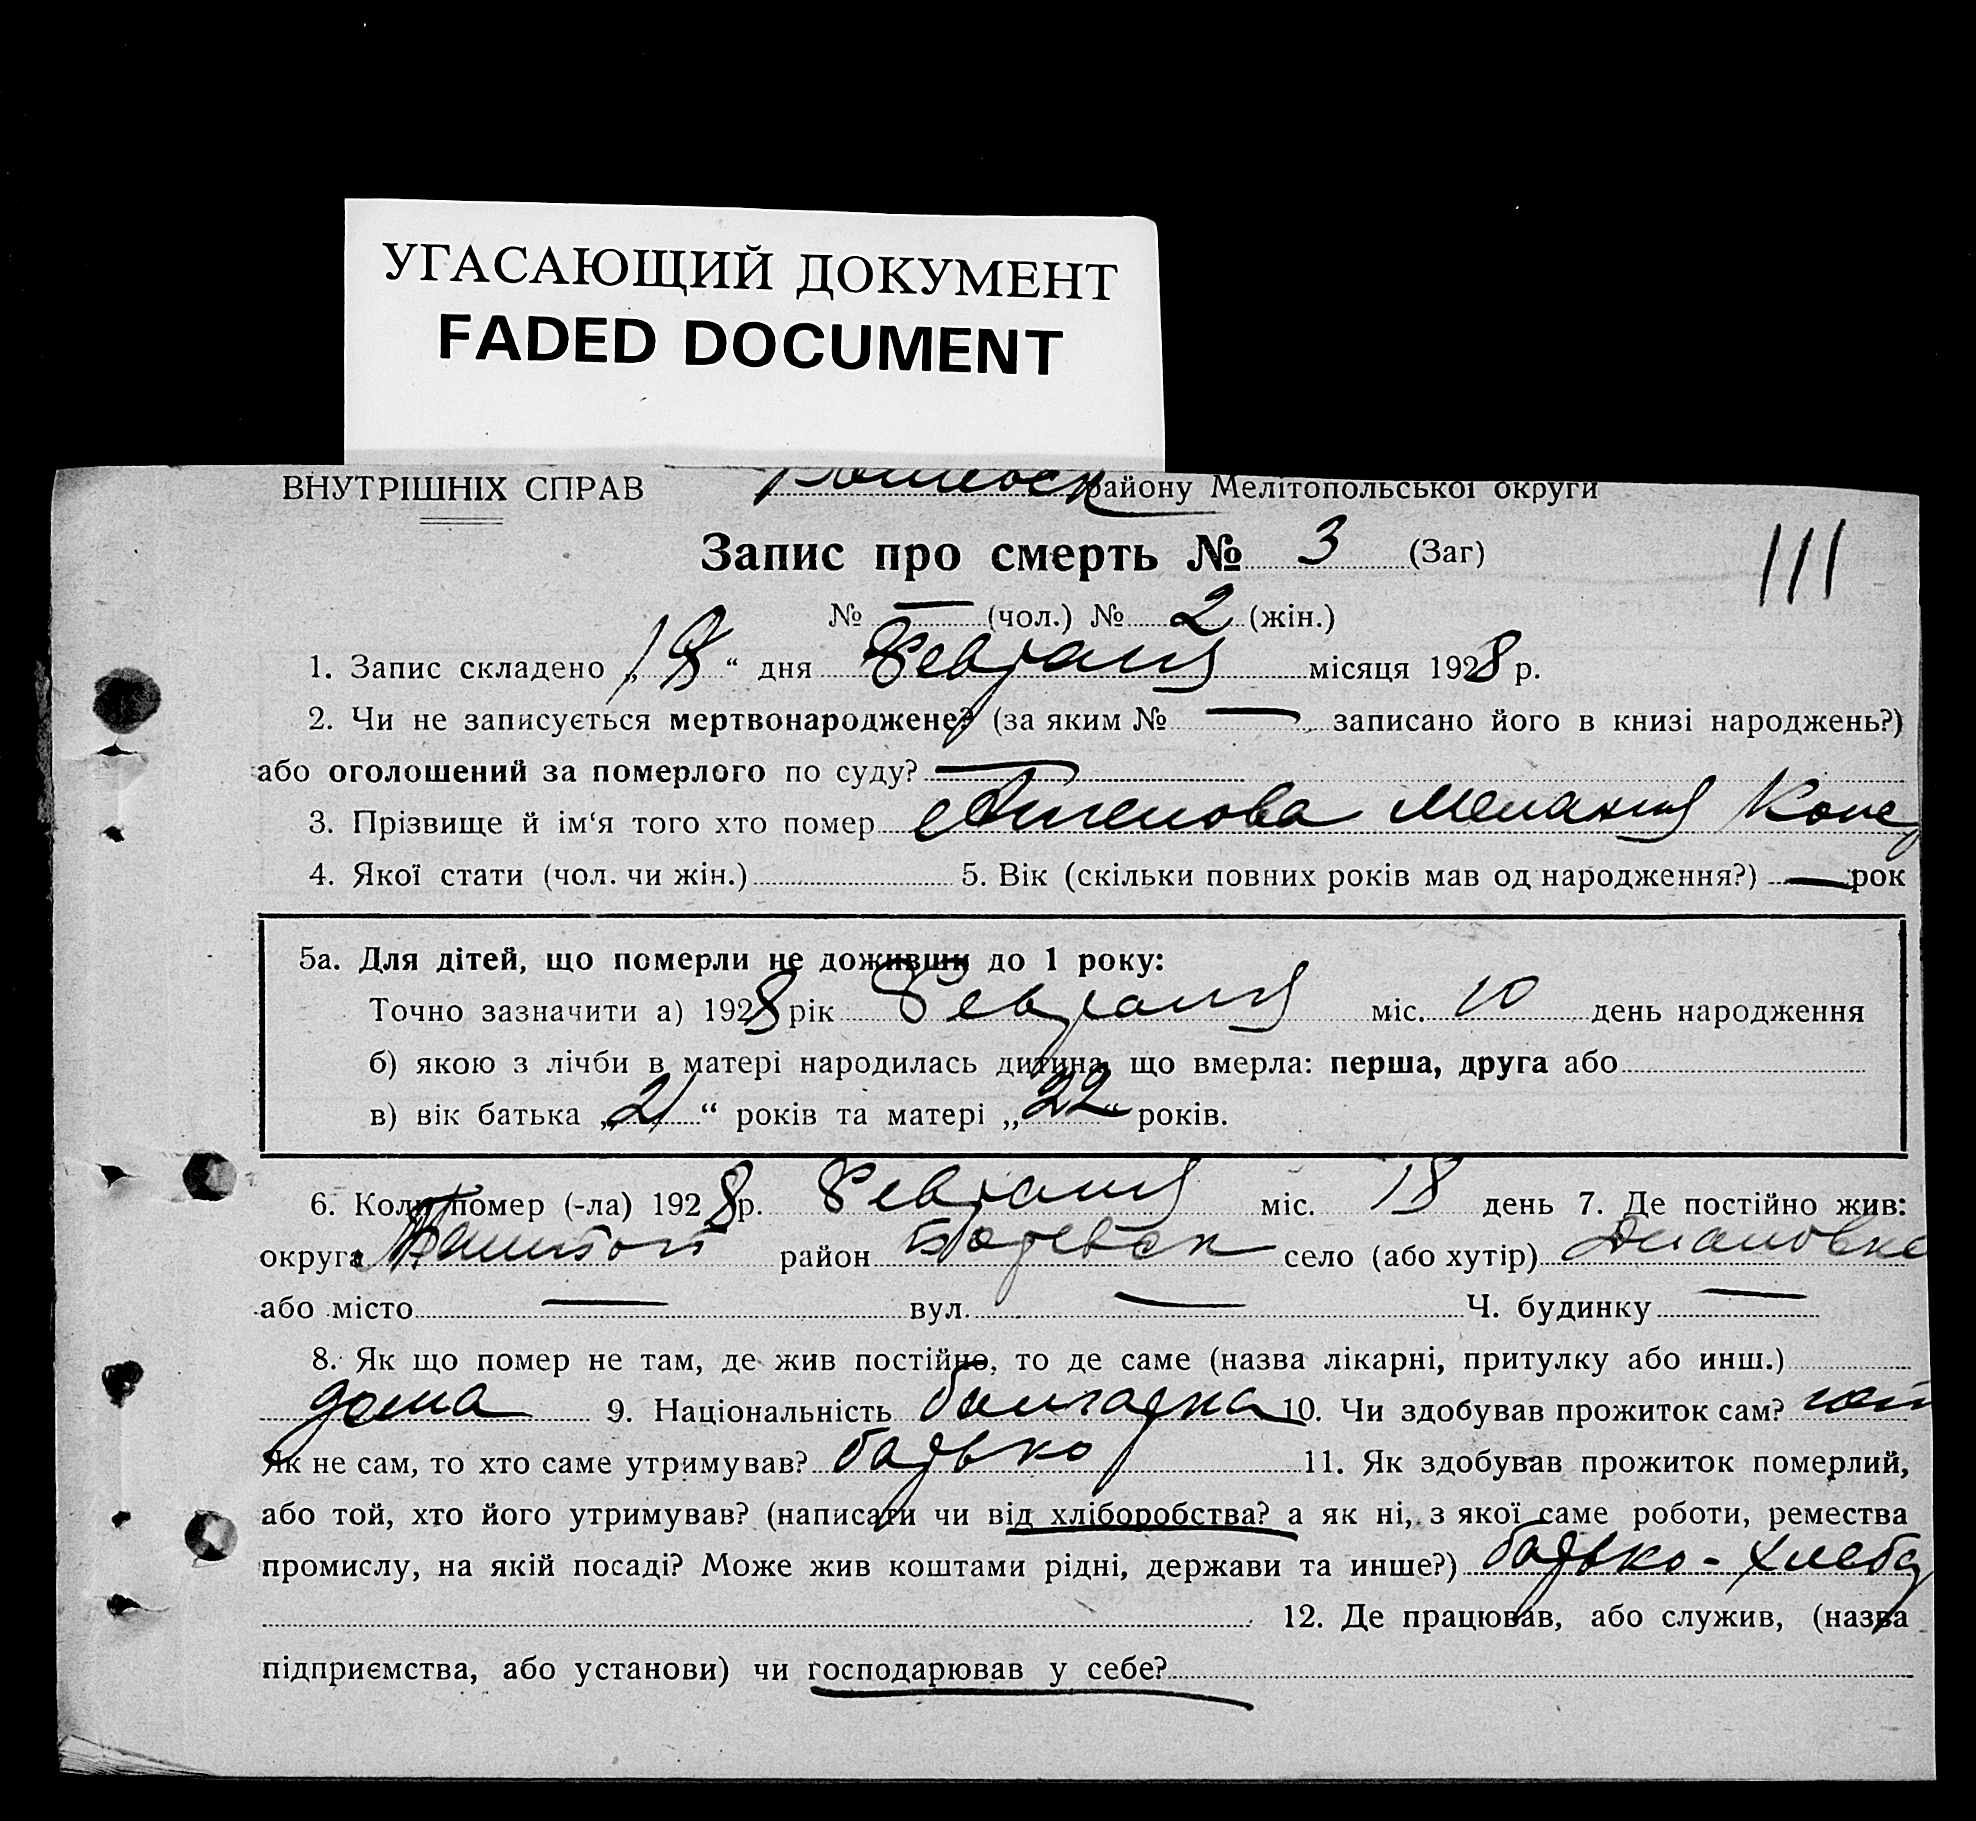 УГАСАЮЩИЙ ДОКУМЕНТ
FADED DOCUMENT
ВНУТРІШНІХ СПРАВ району Мелітопольської округи
Запис про смерть № 3 (Заг)
111
№ — (чол.) № 2 (жін.)
1. Запис складено „18“ дня Февраля місяця 1928 р.
2. Чи не записується мертвонароджене? (за яким № — записано його в книзі народжень?)
або оголошений за померлого по суду? —
3. Прізвище й ім‘я того хто помер Мелания
4. Якої стати (чол. чи жін.) 5. Вік (скільки повних років мав од народження?) — рок
5а. Для дітей, що померли не доживши до 1 року:
Точно зазначити а) 1928 рік Февраля міс. 10 день народження
б) якою з лічби в матері народилась дитина, що вмерла: перша, друга або
в) вік батька „21“ років та матері „22“ років.
6. Коли помер (-ла) 1928 р. Февраля міс. 18 день 7. Де постійно жив:
округа район село (або хутір)
або місто — вул. — Ч. будинку —
8. Як що помер не там, де жив постійно, то де саме (назва лікарні, притулку або инш.)
дома 9. Національність болгарка 10. Чи здобував прожиток сам?
Як не сам, то хто саме утримував? батько 11. Як здобував прожиток померлий,
або той, хто його утримував? (написати чи від хліборобства? а як ні, з якої саме роботи, ремества
промислу, на якій посаді? Може жив коштами рідні, держави та инше?) батько - хлебо
12. Де працював, або служив, (назва
підприємства, або установи) чи господарював у себе?